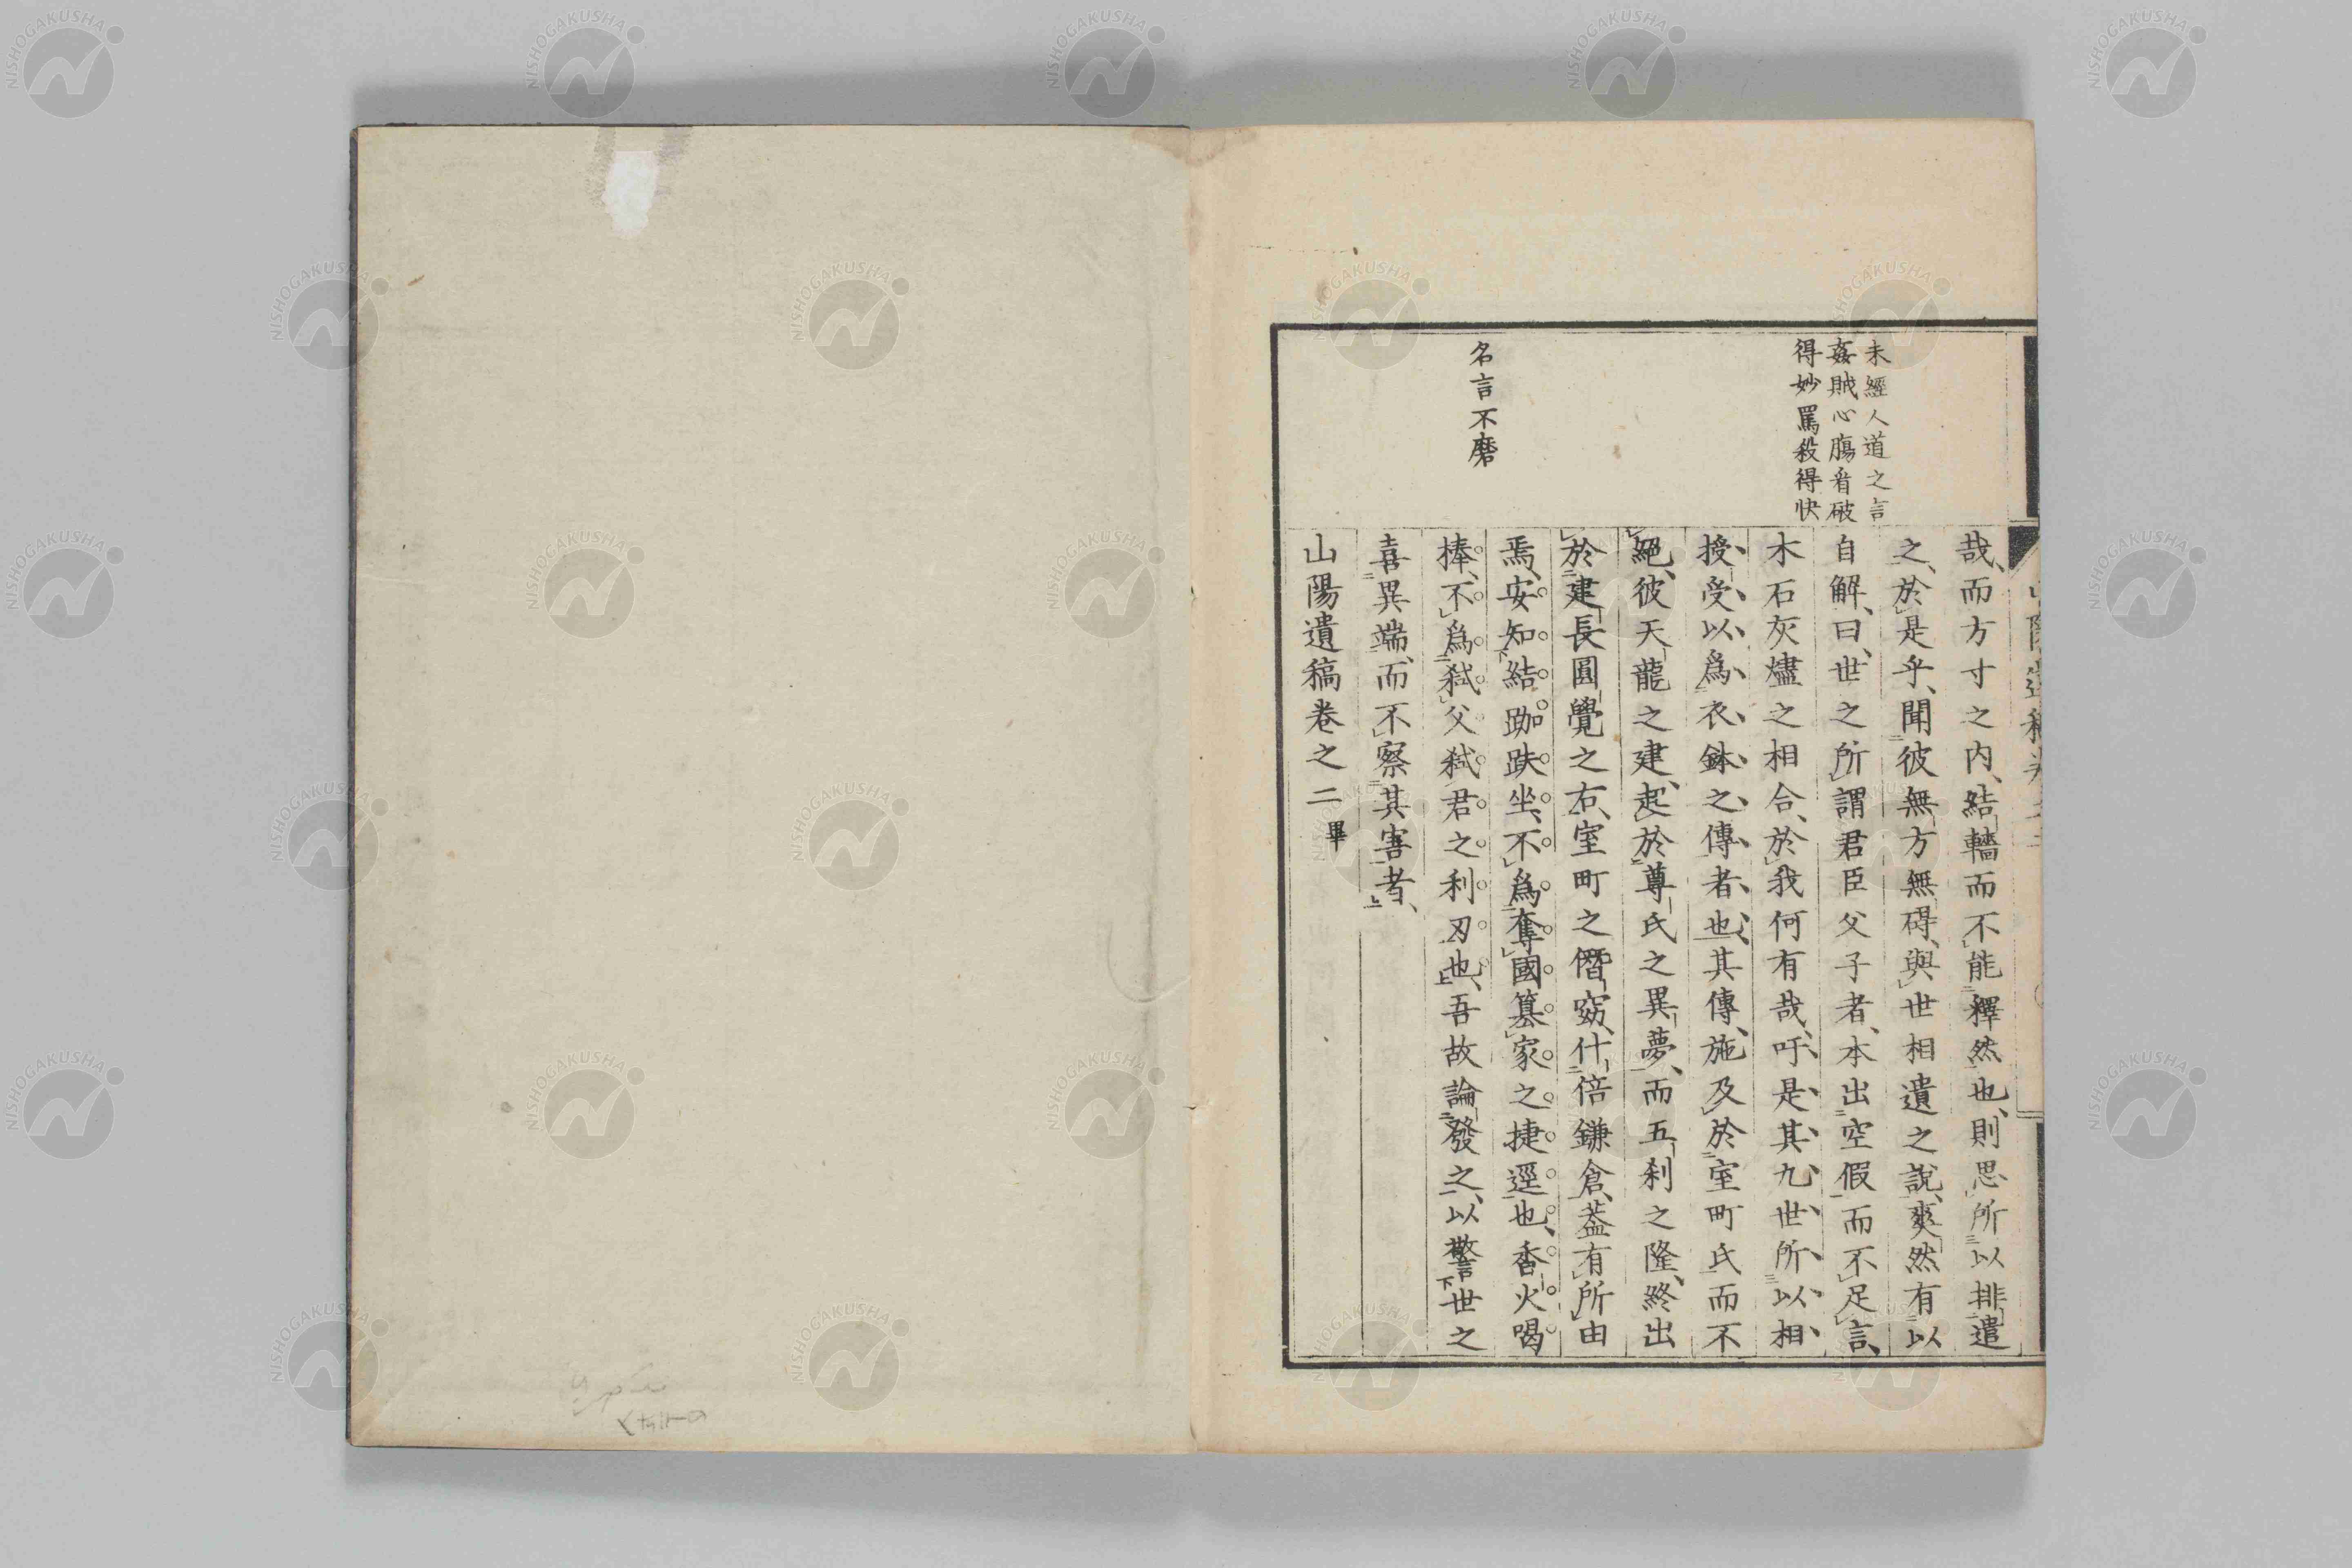 未經人道之言
姦賊心膓看破
得妙罵殺得快
名言不磨
哉、而方寸之内、結轖而不能釋然也、則思所以排遣
之、於是乎、聞彼無方無碍、與世相遺之說、爽然有以
自解、曰、世之所謂君臣父子者、本出空假而不足言、
木石灰燼之相合、於我何有哉、吁、是其九世所以相
授受以爲衣鉢之傳者也、其傳、施及於室町氏而不
絕、彼天龍之建、起於尊氏之異夢、而五刹之隆、終出
於建長圓覺之右、室町之僭竊、什倍鎌倉、葢有所由
焉、安知結跏趺坐、不爲奪國簒家之捷逕也、香火喝
捧、不爲弑父弑君之利刃也、吾故論發之、以警世之
喜異端、而不察其害者、
山陽遺稿卷之二畢